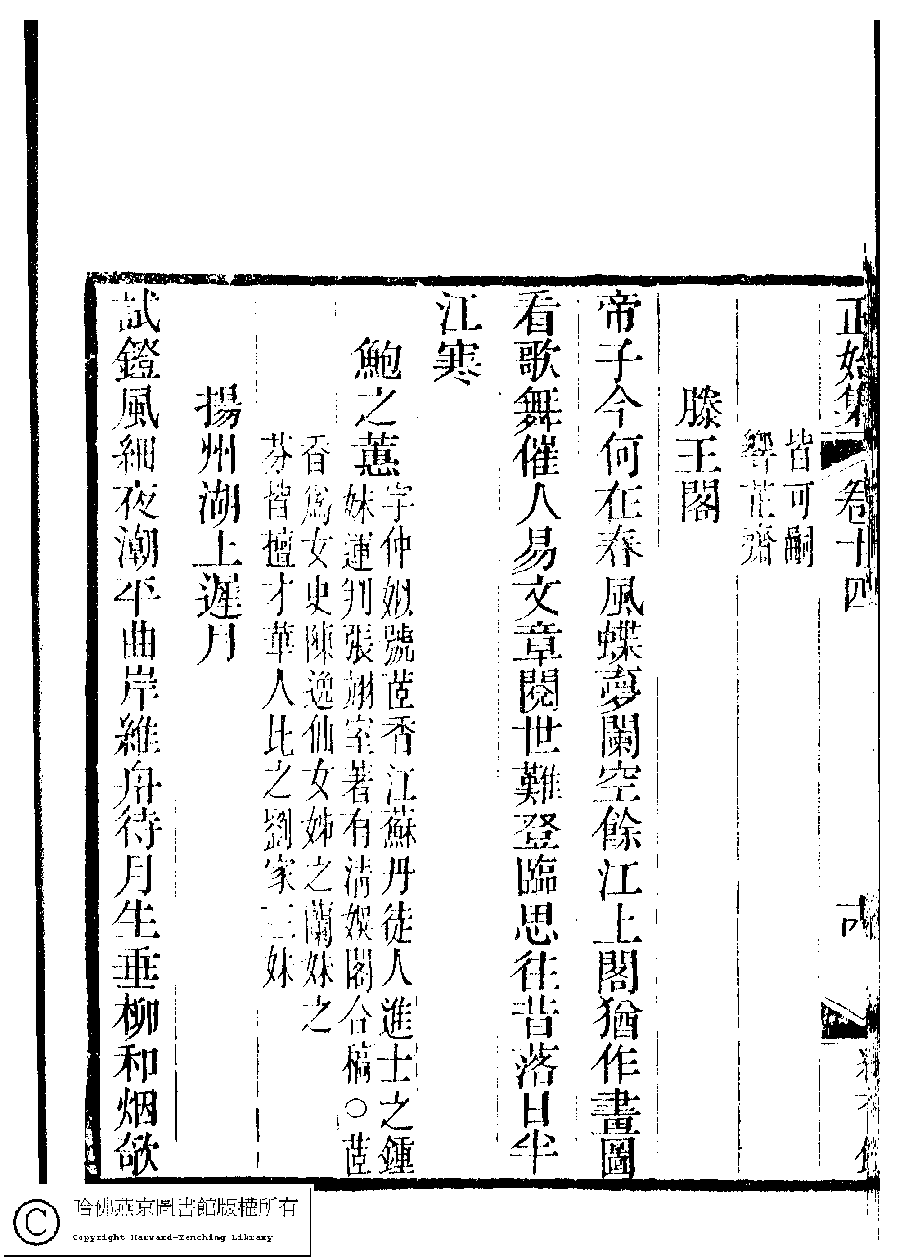 正始集 卷十四
皆可嗣
響芷齋
滕王閣
帝子今何在春風蝶夢闌空餘江上閣猶作畫圖
看歌舞催人易文章閱世難登臨思往昔落日半
江寒
鮑之蕙字仲姒號茝香江蘇丹徒人進士之鍾
妹運判張翊室著有清娛閣合稿○茝
香爲女史陳逸仙女姊之蘭妹之
芬皆擅才華人比之劉家三妹
揚州湖上遲月
試鐙風細夜潮平曲岸維舟待月生垂柳和烟欲
哈佛燕京圖書館版權所有
Copyright Harvard-Yenching Library